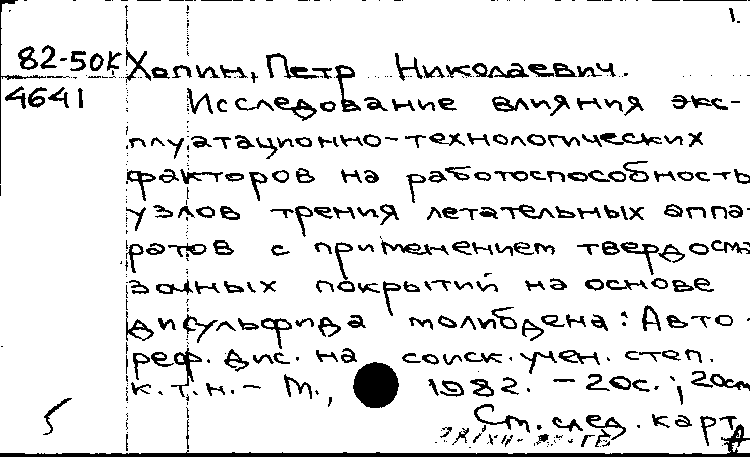 1.
82-50К Хопин, Петр Николаевич.
4641 Исследование влияния экс-
плуатационно-технологических
факторов на работоспособность
узлов трения летательных аппа-
ратов с применением твердосма
зочных покрытий на основе
дисульфида молибдена: Авто-
реф. дис. на соиск. учен. степ.
к.т.н. - М., 1982. - 20с.; 20см
5 Ст. след. карт.